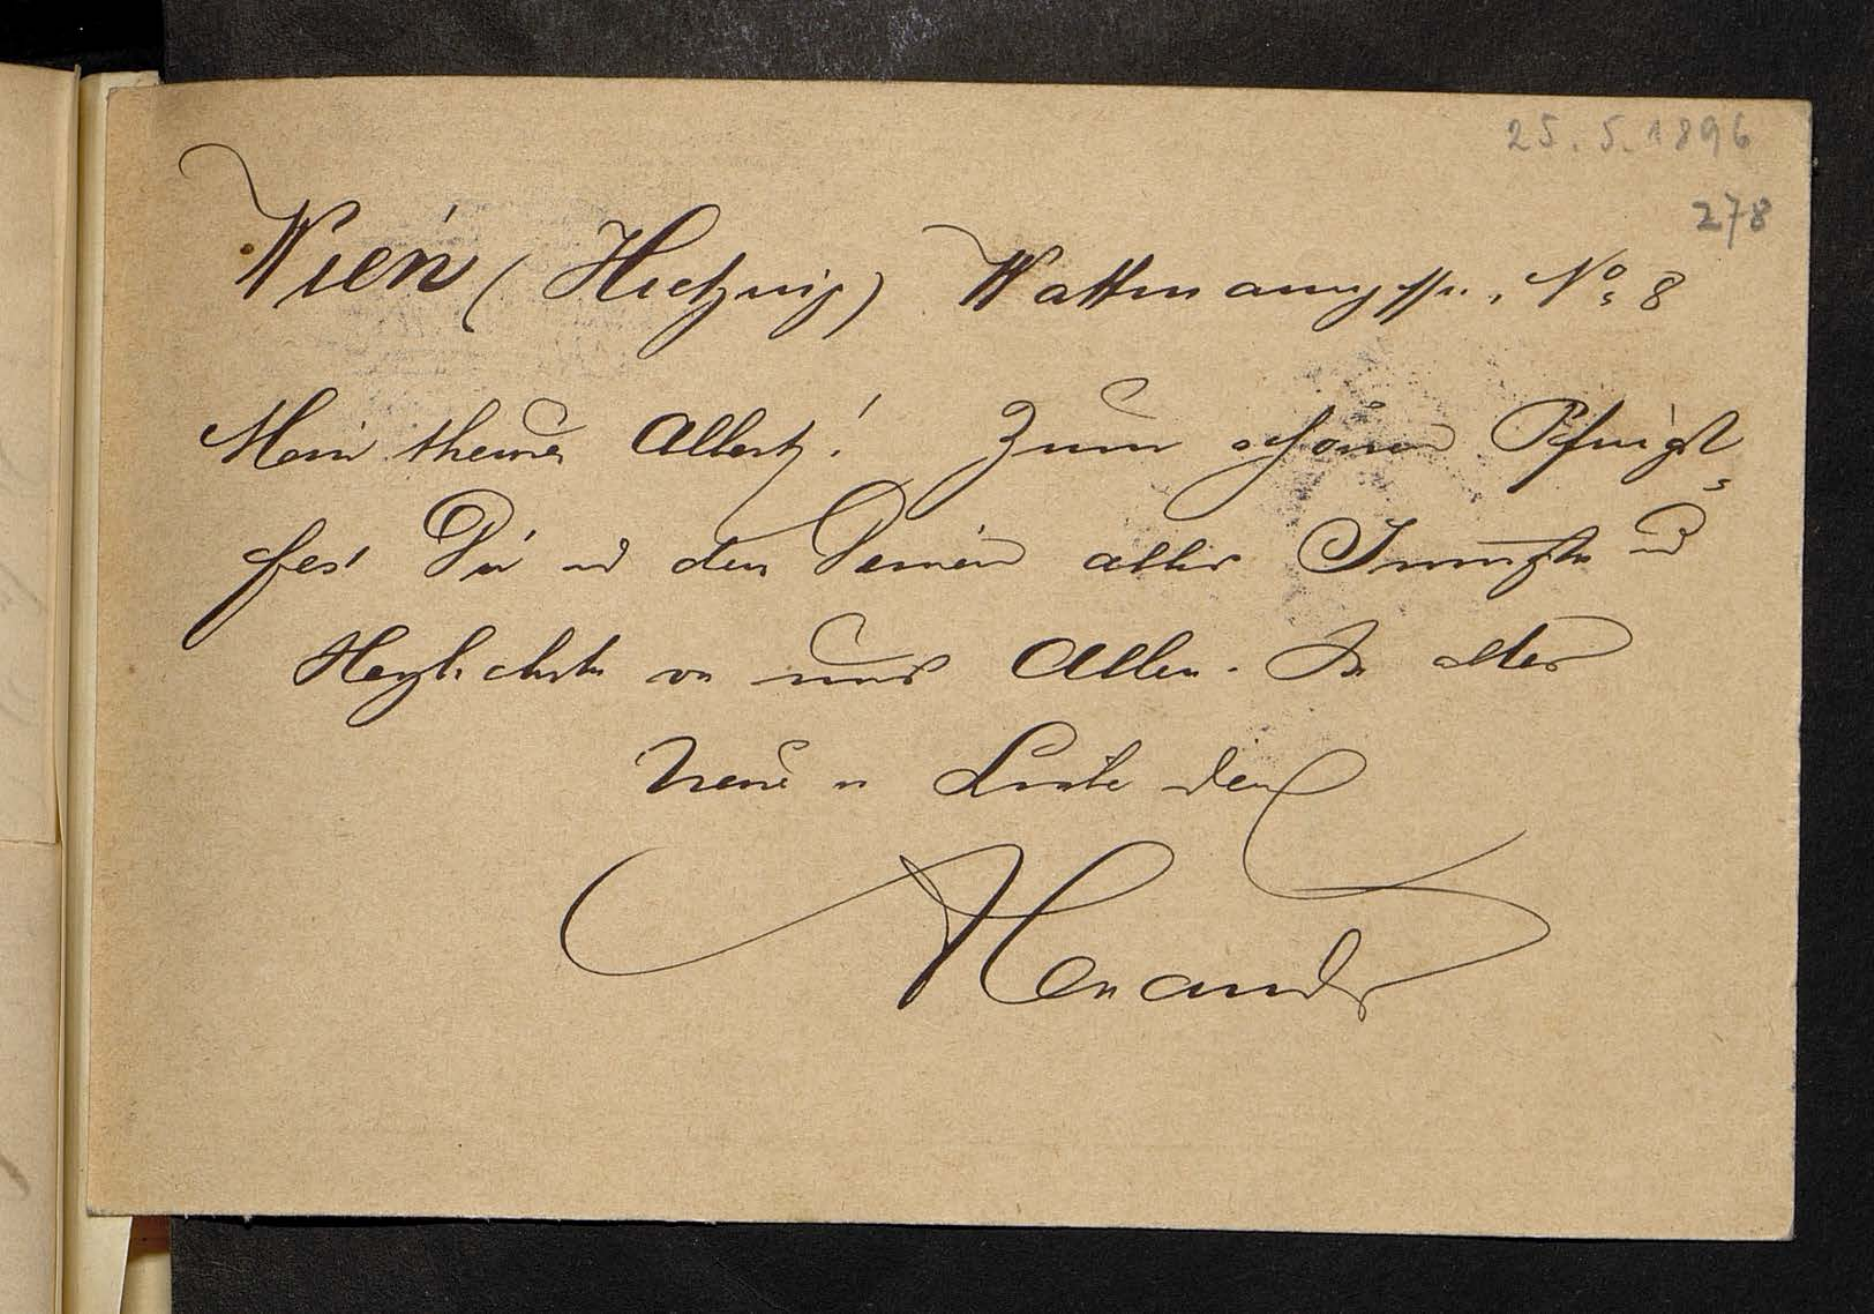 25. 5. 1896
278
Wien (Hietzing) Wattmanngasse. No. 8
Mein theurer Albert! Zum schönen Pfingst-
fest Dir und den Deinen alles Innigste und
Herzlichste von uns Allen. In alter
Treue u Liebe dein